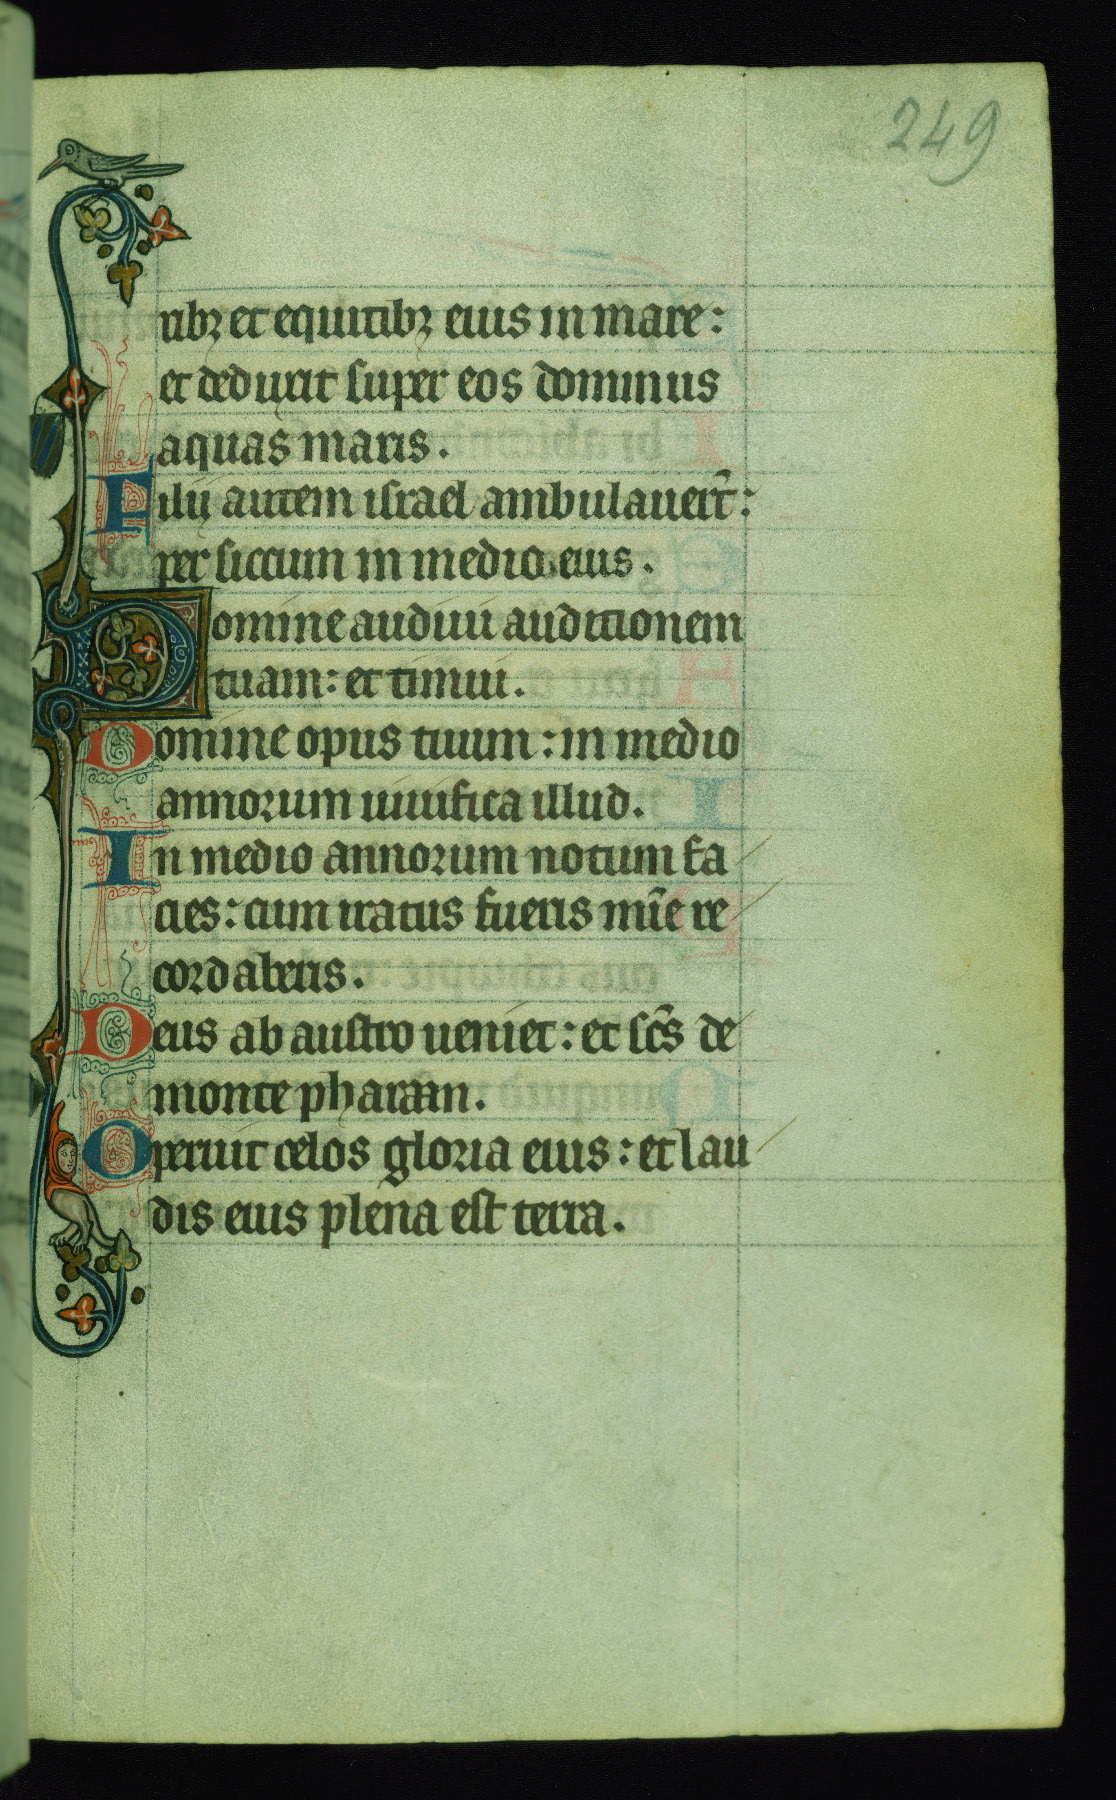 249
ribꝫ et equitibꝫ eius in mare:
et deduxit super eos dominus
aquas maris.
Filij autem israel ambulauer̄t:
per siccum in medio eius.
Domine audiui auditionem
tuam: et timui.
Domine opus tuum: in medio
annorum uiuifica illud.
In medio annorum notum fa
cies: cum iratus fueris mīe re
cordaberis.
Deus ab austro ueniet: et sc̄s de
monte pharan.
Operuit celos gloria eius: et lau
dis eius plena est terra.